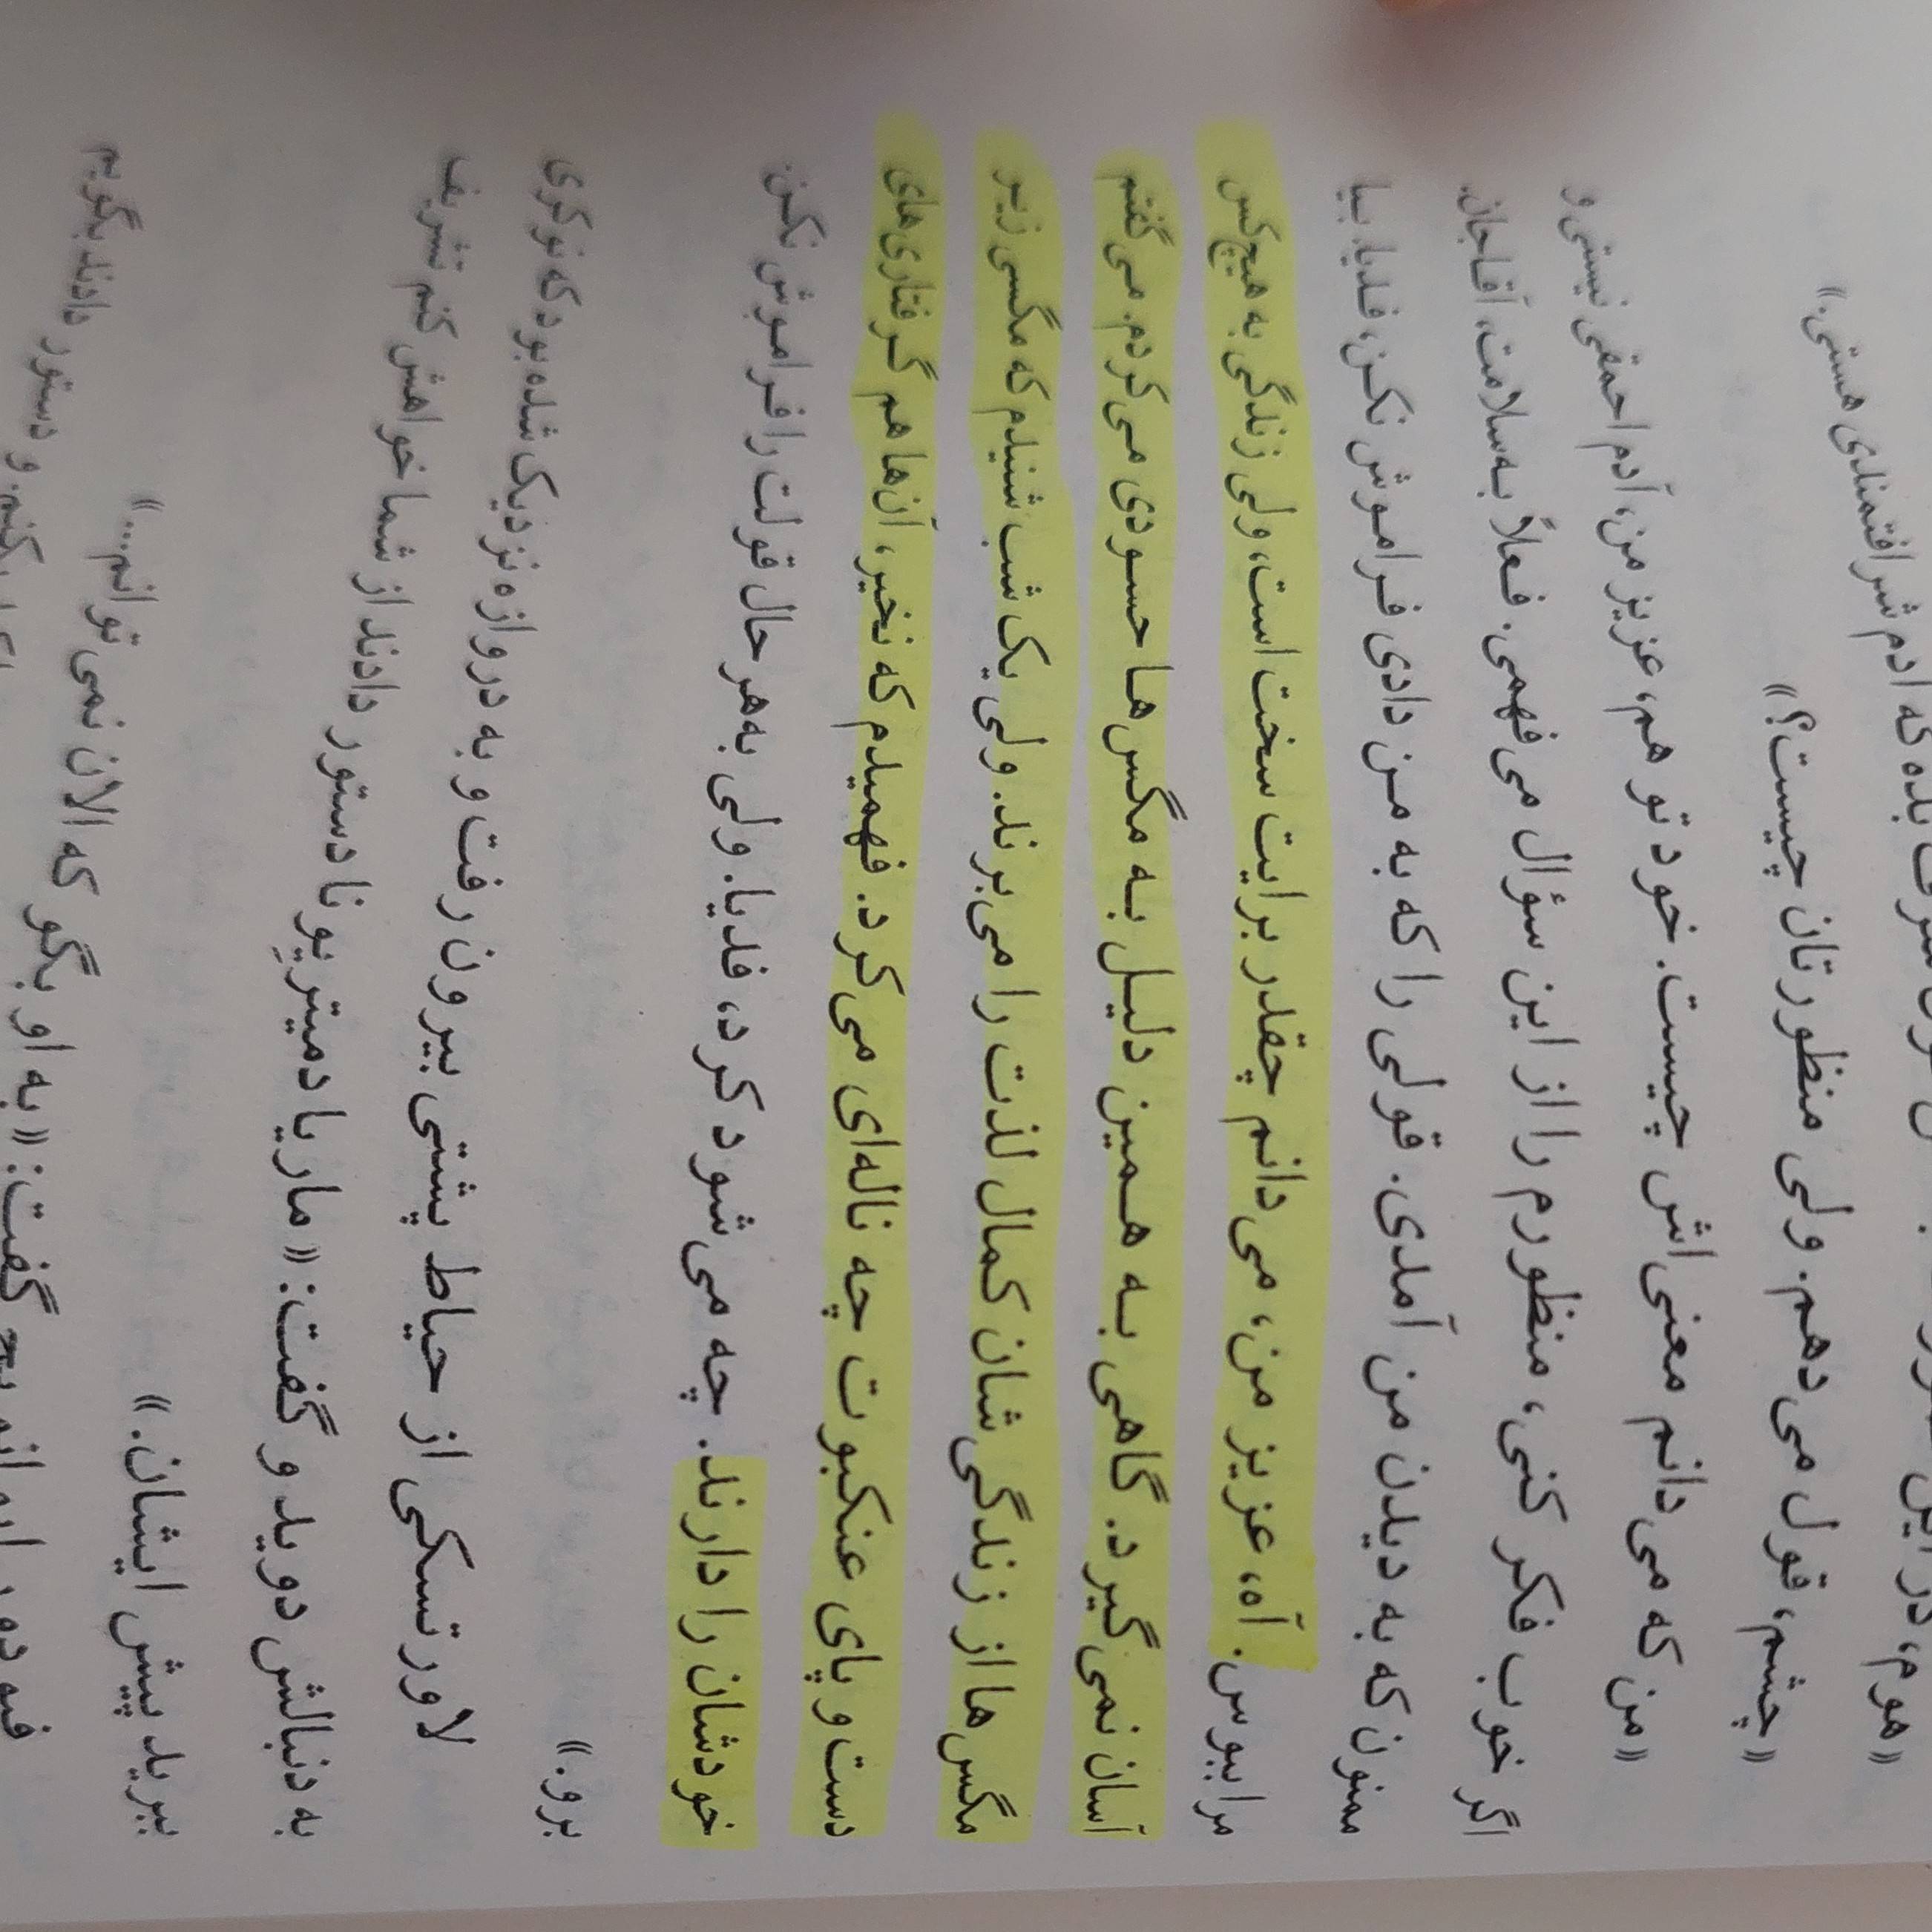 «هوم، در این
که آدم شرافتمندی هستی.»
«چشم، قول می‌دهم. ولی منظورتان چیست؟»
«من که می‌دانم معنی‌اش چیست. خود تو هم، عزیز من، آدم احمقی نیستی و
اگر خوب فکر کنی، منظورم را از این سؤال می‌فهمی. فعلاً به‌سلامت، آقاجان.
ممنون که به دیدن من آمدی. قولی را که به من دادی فراموش نکن، فلدیا. بیا
مرا ببوس. آه، عزیز من، می‌دانم چقدر برایت سخت است، ولی زندگی به هیچ‌کس
آسان نمی‌گیرد. گاهی به همین دلیل به مگس‌ها حسودی می‌کردم. می‌گفتم
مگس‌ها از زندگی‌شان کمال لذت را می‌برند. ولی یک شب شنیدم که مگسی زیر
دست و پای عنکبوت چه ناله‌ای می‌کرد. فهمیدم که نخیر، آن‌ها هم گرفتاری‌های
خودشان را دارند. چه می‌شود کرد، فدیا. ولی به‌هرحال قولت را فراموش نکن.
برو.»
لاورتسکی از حیاط پشتی بیرون رفت و به دروازه نزدیک شده بود که نوکری
به دنبالش دوید و گفت: «ماریا دمیتریونا دستور دادند از شما خواهش کنم تشریف
ببرید پیش ایشان.»
«به او بگو که الان نمی‌توانم...»
و دستور دادند بگویم